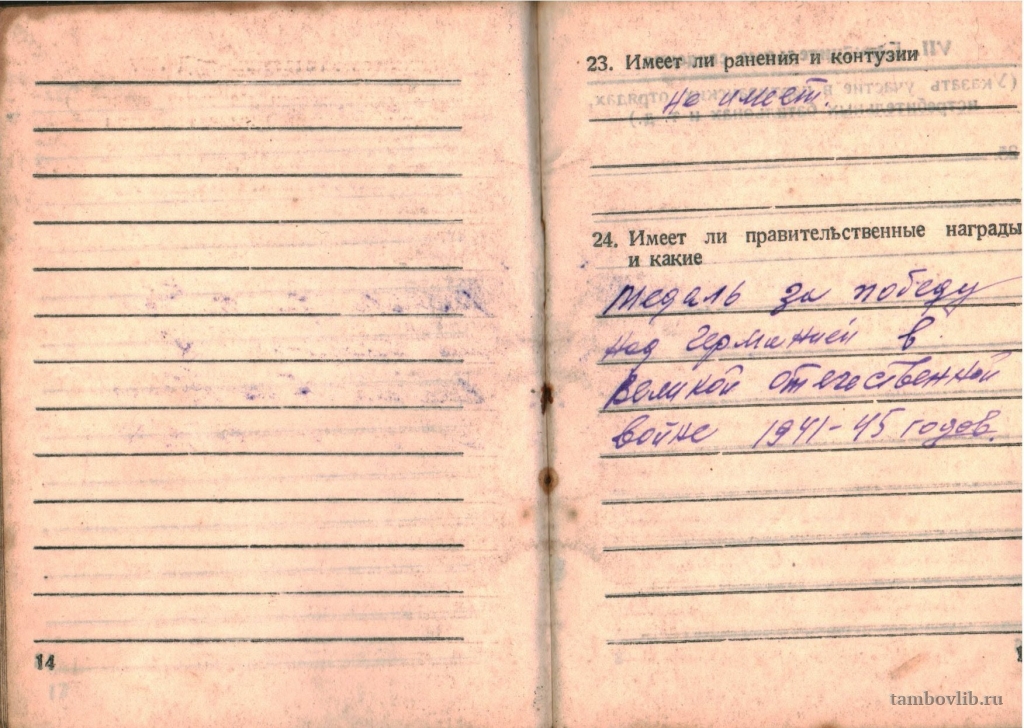 14
23. Имеет ли ранения и контузии
не имеет.
24. Имеет ли правительственные награды
и какие
Медаль за победу
над Германией в
Великой отечественной
войне 1941-45 годов.
tambovlib.ru